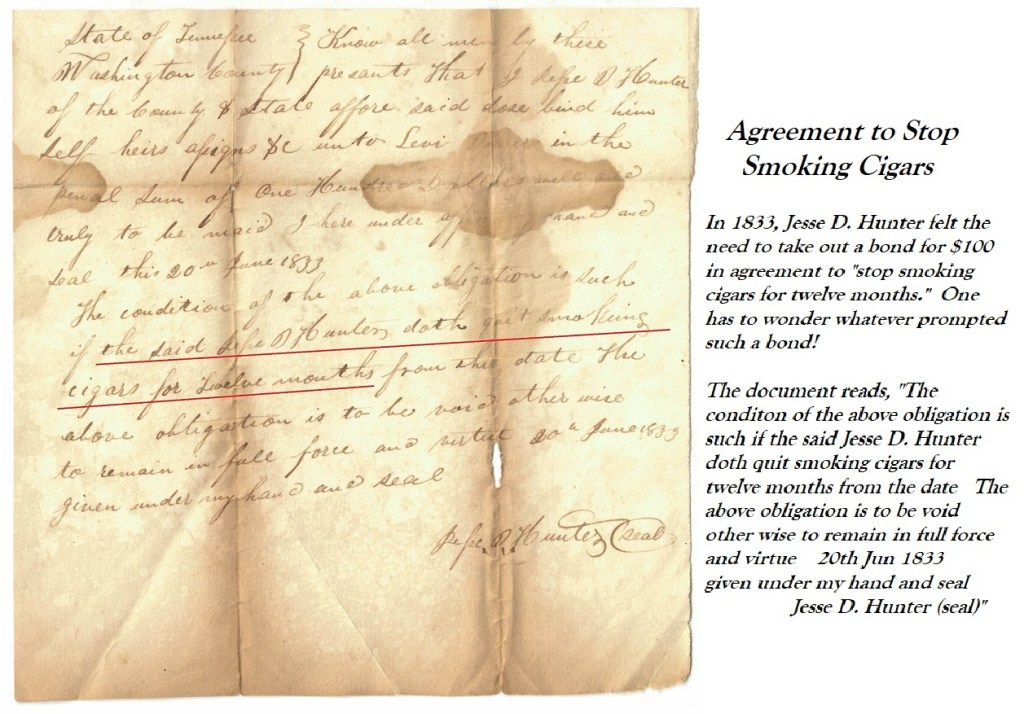 State of Tennessee } Know all men by these
Washington County } presants that I Jesse D Hunter
of the County & State affore said dose bind him
self heirs assigns &c unto Levi in the
penal sum of One Hundred Dollars well and
truly to be maid I here under my hand and
seal this 20th June 1833
The condition of the above obligation is such
if the said Jesse D Hunter doth quit smoking
cigars for Twelve months from this date The
above obligation is to be void other wise
to remain in full force and virtue 20th June 1833
given under my hand and seal
Jesse D Hunter (seal)
Agreement to Stop
Smoking Cigars
In 1833, Jesse D. Hunter felt the
need to take out a bond for $100
in agreement to "stop smoking
cigars for twelve months." One
has to wonder whatever prompted
such a bond!
The document reads, "The
conditon of the above obligation is
such if the said Jesse D. Hunter
doth quit smoking cigars for
twelve months from the date The
above obligation is to be void
other wise to remain in full force
and virtue 20th Jun 1833
given under my hand and seal
Jesse D. Hunter (seal)"